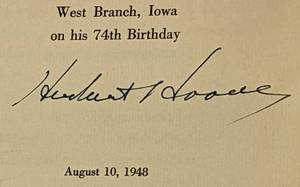 West Branch, Iowa
on his 74th Birthday
Herbert Hoover
August 10, 1948